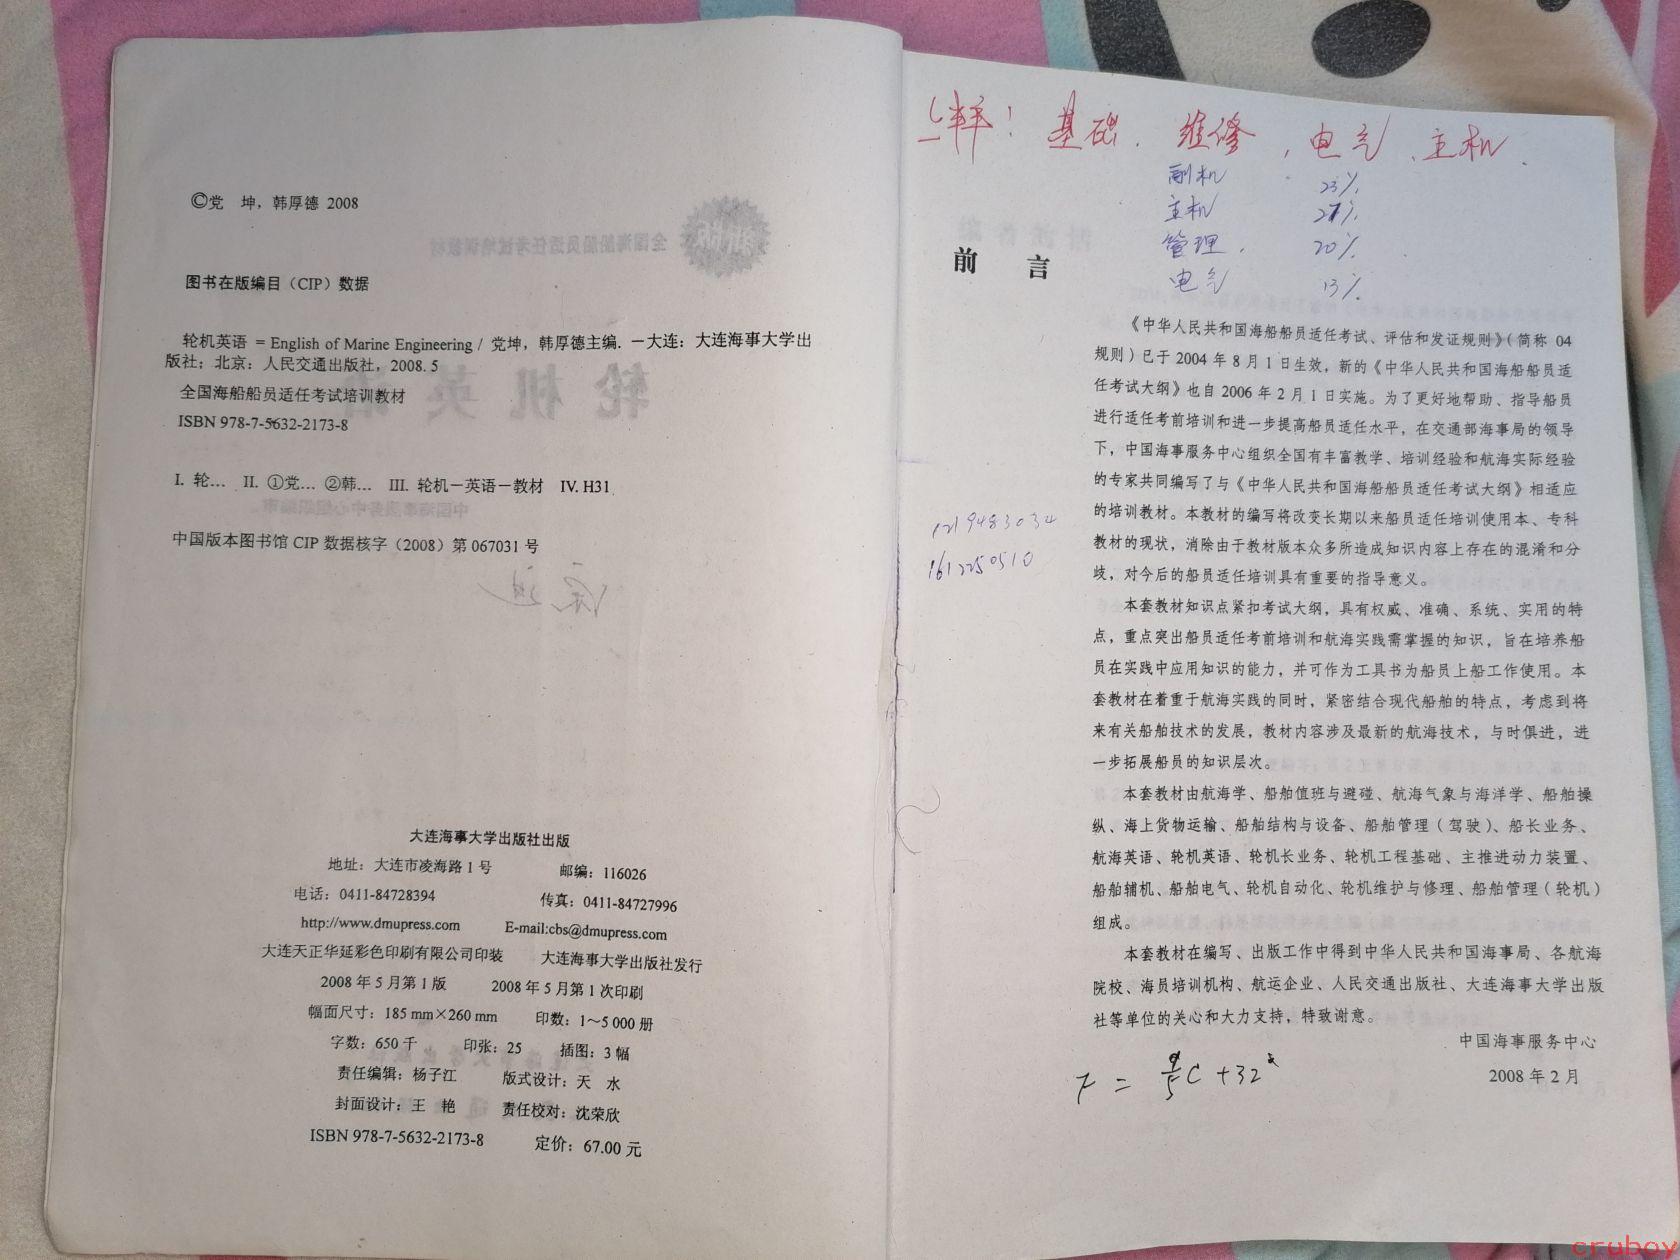 ©党 坤，韩厚德 2008
图书在版编目（CIP）数据
轮机英语 = English of Marine Engineering / 党坤，韩厚德主编. —大连：大连海事大学出
版社；北京：人民交通出版社，2008.5
全国海船船员适任考试培训教材
ISBN 978-7-5632-2173-8
I. 轮… II. ①党… ②韩… III. 轮机－英语－教材 IV. H31
中国版本图书馆 CIP 数据核字（2008）第 067031 号
大连海事大学出版社出版
地址：大连市凌海路 1 号 邮编：116026
电话：0411-84728394 传真：0411-84727996
http://www.dmupress.com E-mail:cbs@dmupress.com
大连天正华延彩色印刷有限公司印装 大连海事大学出版社发行
2008 年 5 月第 1 版 2008 年 5 月第 1 次印刷
幅面尺寸：185 mm×260 mm 印数：1～5 000 册
字数：650 千 印张：25 插图：3 幅
责任编辑：杨子江 版式设计：天 水
封面设计：王 艳 责任校对：沈荣欣
ISBN 978-7-5632-2173-8 定价：67.00 元
基础、维修、电气、主机.
副机 23%
主机 27%
管理 20%
电气 13%
前 言
《中华人民共和国海船船员适任考试、评估和发证规则》（简称 04
规则）已于 2004 年 8 月 1 日生效，新的《中华人民共和国海船船员适
任考试大纲》也自 2006 年 2 月 1 日实施。为了更好地帮助、指导船员
进行适任考前培训和进一步提高船员适任水平，在交通部海事局的领导
下，中国海事服务中心组织全国有丰富教学、培训经验和航海实际经验
的专家共同编写了与《中华人民共和国海船船员适任考试大纲》相适应
的培训教材。本教材的编写将改变长期以来船员适任培训使用本、专科
教材的现状，消除由于教材版本众多所造成知识内容上存在的混淆和分
歧，对今后的船员适任培训具有重要的指导意义。
本套教材知识点紧扣考试大纲，具有权威、准确、系统、实用的特
点，重点突出船员适任考前培训和航海实践需掌握的知识，旨在培养船
员在实践中应用知识的能力，并可作为工具书为船员上船工作使用。本
套教材在着重于航海实践的同时，紧密结合现代船舶的特点，考虑到将
来有关船舶技术的发展，教材内容涉及最新的航海技术，与时俱进，进
一步拓展船员的知识层次。
本套教材由航海学、船舶值班与避碰、航海气象与海洋学、船舶操
纵、海上货物运输、船舶结构与设备、船舶管理（驾驶）、船长业务、
航海英语、轮机英语、轮机长业务、轮机工程基础、主推进动力装置、
船舶辅机、船舶电气、轮机自动化、轮机维护与修理、船舶管理（轮机）
组成。
本套教材在编写、出版工作中得到中华人民共和国海事局、各航海
院校、海员培训机构、航运企业、人民交通出版社、大连海事大学出版
社等单位的关心和大力支持，特致谢意。
中国海事服务中心
2008 年 2 月
1219483034
1612250510
F = 9/5 C + 32°
cruboy